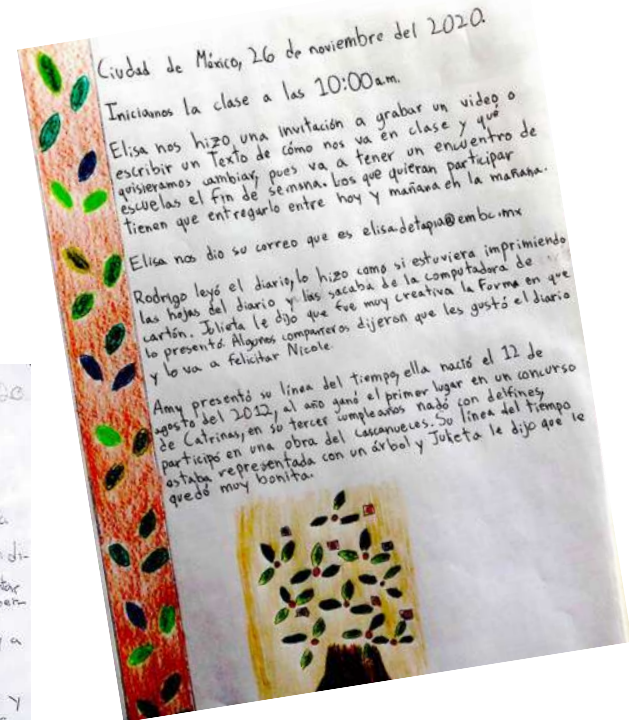 Ciudad de México, 26 de noviembre del 2020.
Iniciamos la clase a las 10:00 a.m.
Elisa nos hizo una invitación a grabar un video o
escribir un Texto de cómo nos va en clase y qué
quisieramos cambiar, pues va a tener un encuentro de
escuelas el fin de semana. Los que quieran participar
tienen que entregarlo entre hoy y mañana en la mañana.
Elisa nos dio su correo que es elisa.detapia@embc.mx
Rodrigo leyó el diario, lo hizo como si estuviera imprimiendo
las hojas del diario y las sacaba de la computadora de
cartón. Julieta le dijo que fue muy creativa la Forma en que
lo presentó. Algunos compañeros dijeron que les gustó el diario
y lo va a felicitar Nicole.
Amy presentó su línea del tiempo, ella nació el 12 de
agosto del 2012, al año ganó el primer lugar en un concurso
de Catrinas, en su tercer cumpleaños nadó con delfines,
participó en una obra del Cascanueces. Su línea del tiempo
estaba representada con un árbol y Julieta le dijo que le
quedó muy bonita.
a
di-
tar
a
y